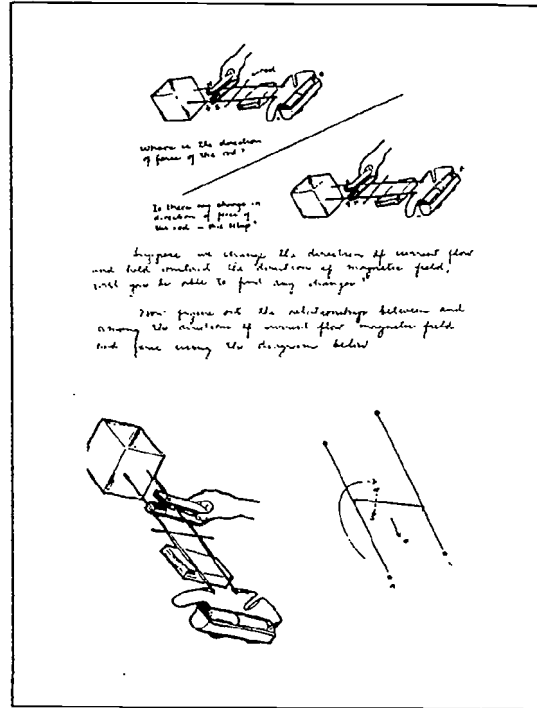 rod
Where is the direction
of force of the rod?
Is there any change in
direction of force of
the rod in this setup?
Suppose we change the direction of current flow
and hold constant the direction of magnetic field,
will you be able to find any changes?
Now figure out the relationships between and
among the directions of current flow magnetic field
and force using the diagram below